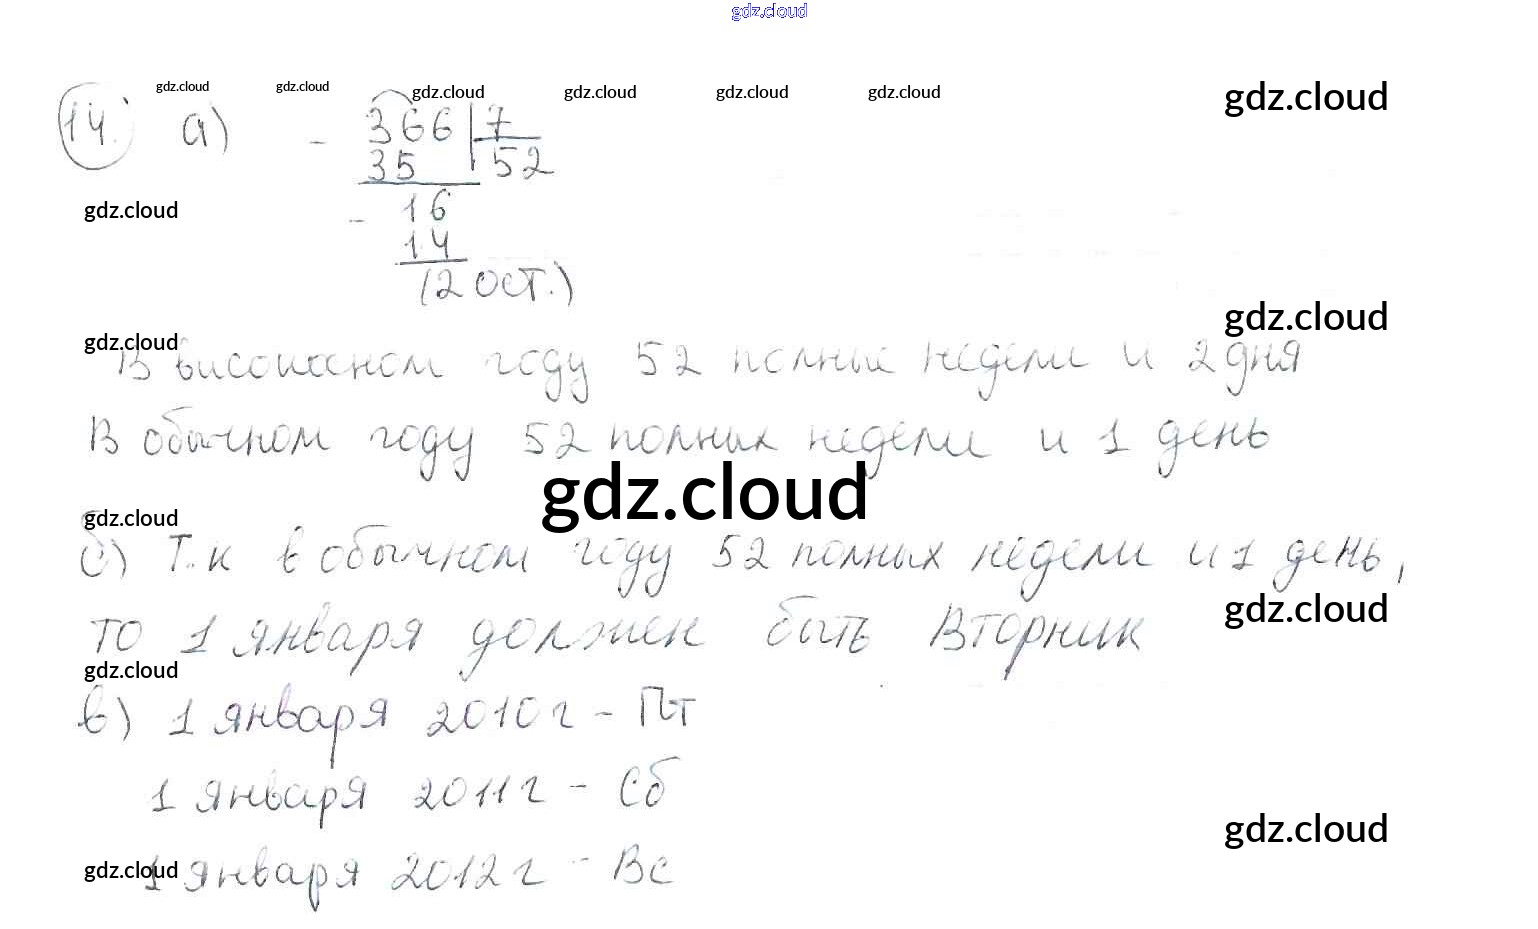 gdz.cloud
gdz.cloud gdz.cloud gdz.cloud gdz.cloud gdz.cloud gdz.cloud gdz.cloud
14. а) - 366 | 7
35 52
gdz.cloud
- 16
14
(2 ост.)
gdz.cloud
gdz.cloud
В високосном году 52 полные недели и 2 дня
В обычном году 52 полных недели и 1 день
gdz.cloud
gdz.cloud
б) Т.к в обычном году 52 полных недели и 1 день,
gdz.cloud
то 1 января должен быть Вторник
gdz.cloud
в) 1 января 2010 г - Пт
1 января 2011 г - Сб
gdz.cloud
gdz.cloud
1 января 2012 г - Вс